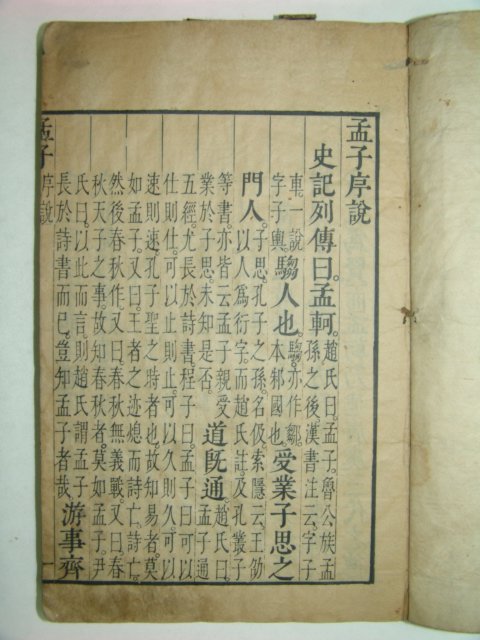 孟子序說
史記列傳曰。孟軻。趙氏曰。孟子。魯公族孟孫之後。漢書注云。字子
車。一說字子輿。騶人也。騶亦作鄒。本邾國也。受業子思之
門人。子思。孔子之孫。名伋。索隱云。王劭以人爲衍字。而趙氏註。及孔叢子
等書。亦皆云。孟子親受業於子思。未知是否。道既通。趙氏曰。孟子通
五經。尤長於詩書。程子曰。孟子曰。可以仕則仕。可以止則止。可以久則久。可以
速則速。孔子聖之時者也。故知易者。莫如孟子。又曰。王者之迹熄而詩亡。詩亡
然後春秋作。又曰。春秋無義戰。又曰。春秋天子之事。故知春秋者。莫如孟子。尹
氏曰。以此而言。則趙氏謂孟子長於詩書而已。豈知孟子者哉。游事齊
孟子 序說 一